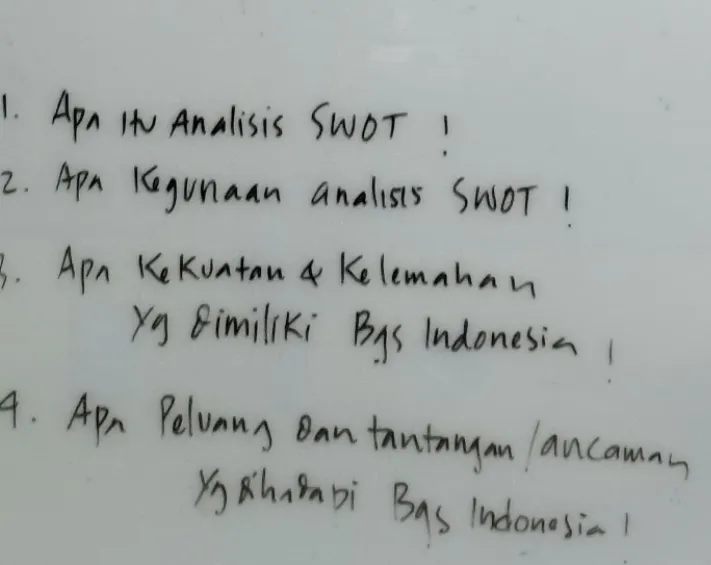 1. Apa itu Analisis SWOT !
2. Apa Kegunaan analisis SWOT !
3. Apa Kekuatan & Kelemahan
Yg dimiliki Bgs Indonesia !
4. Apa Peluang dan tantangan/ancaman
Yg dihadapi Bgs Indonesia !